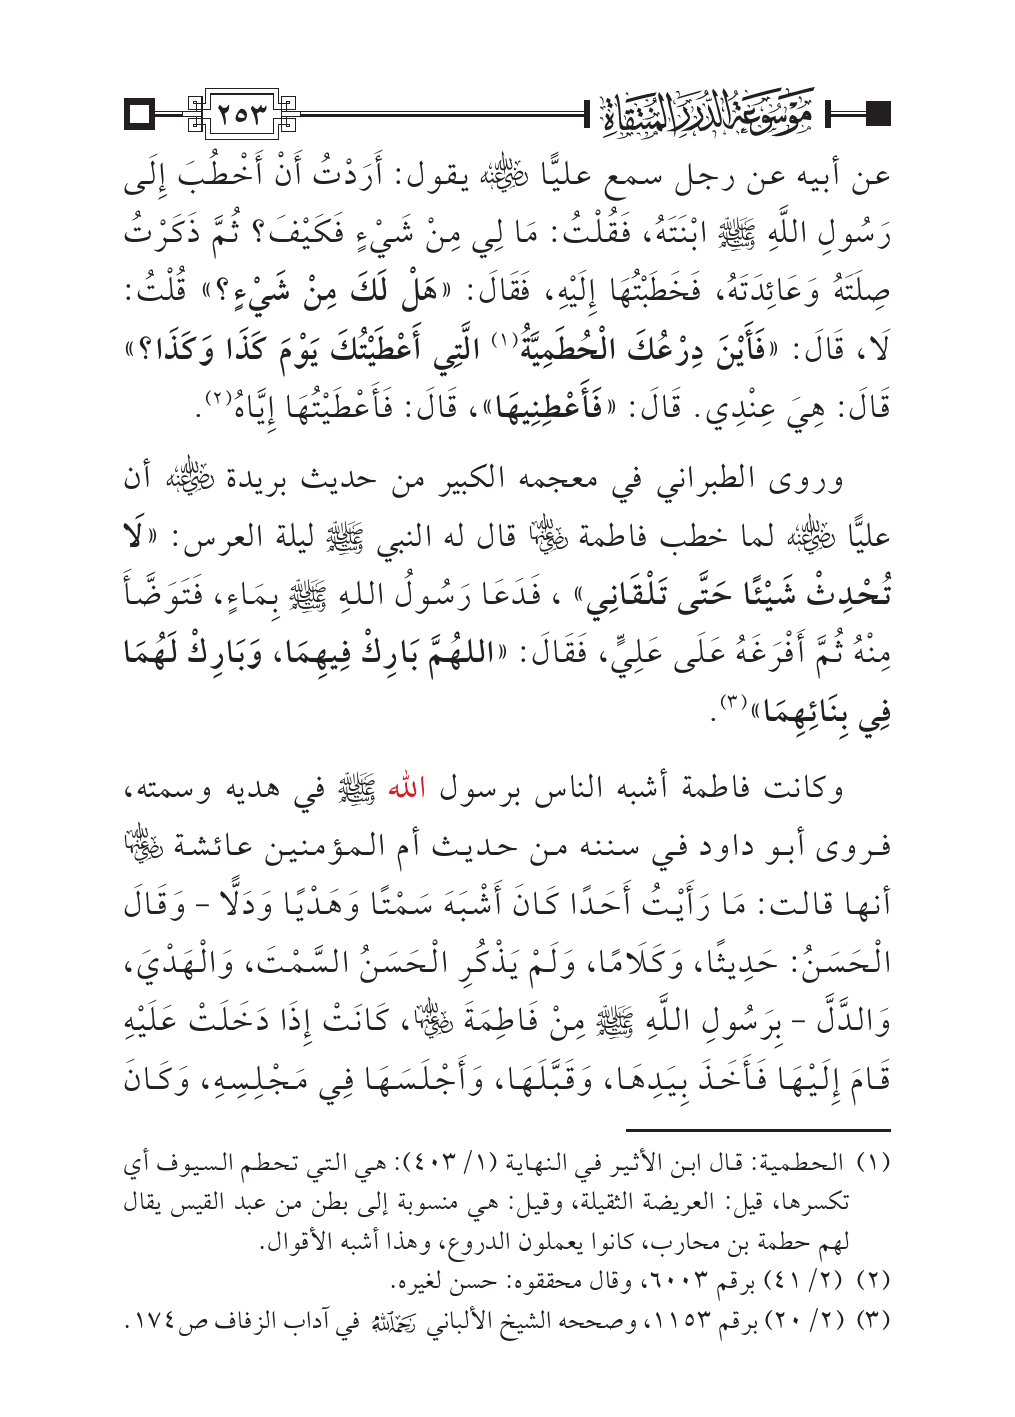 مَوْسُوعَةُ الدُّرَرِ الْمُنْتَقَاةِ
٢٥٣
عن أبيه عن رجل سمع عليًّا رضي الله عنه يقول: أَرَدْتُ أَنْ أَخْطُبَ إِلَى
رَسُولِ اللَّهِ ﷺ ابْنَتَهُ، فَقُلْتُ: مَا لِي مِنْ شَيْءٍ فَكَيْفَ؟ ثُمَّ ذَكَرْتُ
صِلَتَهُ وَعَائِدَتَهُ، فَخَطَبْتُهَا إِلَيْهِ، فَقَالَ: «هَلْ لَكَ مِنْ شَيْءٍ؟» قُلْتُ:
لَا، قَالَ: «فَأَيْنَ دِرْعُكَ الْحُطَمِيَّةُ(١) الَّتِي أَعْطَيْتُكَ يَوْمَ كَذَا وَكَذَا؟»
قَالَ: هِيَ عِنْدِي. قَالَ: «فَأَعْطِنِيهَا»، قَالَ: فَأَعْطَيْتُهَا إِيَّاهُ(٢).
وروى الطبراني في معجمه الكبير من حديث بريدة رضي الله عنه أن
عليًّا رضي الله عنه لما خطب فاطمة رضي الله عنها قال له النبي ﷺ ليلة العرس: «لَا
تُحْدِثْ شَيْئًا حَتَّى تَلْقَانِي» ، فَدَعَا رَسُولُ اللهِ ﷺ بِمَاءٍ، فَتَوَضَّأَ
مِنْهُ ثُمَّ أَفْرَغَهُ عَلَى عَلِيٍّ، فَقَالَ: «اللهُمَّ بَارِكْ فِيهِمَا، وَبَارِكْ لَهُمَا
فِي بِنَائِهِمَا»(٣).
وكانت فاطمة أشبه الناس برسول الله ﷺ في هديه وسمته،
فروى أبو داود في سننه من حديث أم المؤمنين عائشة رضي الله عنها
أنها قالت: مَا رَأَيْتُ أَحَدًا كَانَ أَشْبَهَ سَمْتًا وَهَدْيًا وَدَلًّا – وَقَالَ
الْحَسَنُ: حَدِيثًا، وَكَلَامًا، وَلَمْ يَذْكُرِ الْحَسَنُ السَّمْتَ، وَالْهَدْيَ،
وَالدَّلَّ – بِرَسُولِ اللَّهِ ﷺ مِنْ فَاطِمَةَ رضي الله عنها، كَانَتْ إِذَا دَخَلَتْ عَلَيْهِ
قَامَ إِلَيْهَا فَأَخَذَ بِيَدِهَا، وَقَبَّلَهَا، وَأَجْلَسَهَا فِي مَجْلِسِهِ، وَكَانَ
(١) الحطمية: قال ابن الأثير في النهاية (١/ ٤٠٣): هي التي تحطم السيوف أي
تكسرها، قيل: العريضة الثقيلة، وقيل: هي منسوبة إلى بطن من عبد القيس يقال
لهم حطمة بن محارب، كانوا يعملون الدروع، وهذا أشبه الأقوال.
(٢) (٢/ ٤١) برقم ٦٠٠٣، وقال محققوه: حسن لغيره.
(٣) (٢/ ٢٠) برقم ١١٥٣، وصححه الشيخ الألباني رحمه الله في آداب الزفاف ص١٧٤.